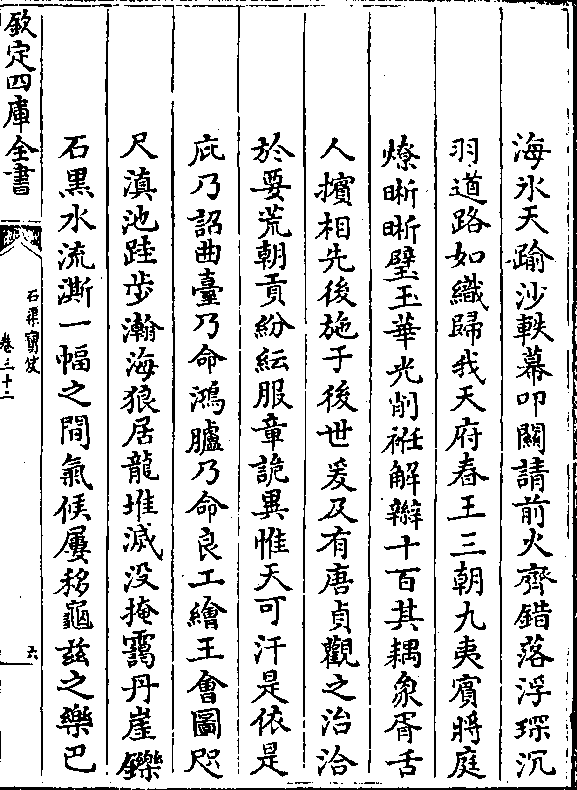 海氷天踰沙軼幕叩關請前火齊錯落浮琛沉
羽道路如織歸我天府春王三朝九夷賓將庭
燎晰晰璧玉華光削袵解辮十百其耦象胥舌
人擯相先後施于後世爰及有唐貞觀之治洽
於要荒朝貢紛紜服章詭異惟天可汗是依是
庇乃詔曲臺乃命鴻臚乃命良工繪王會圖咫
尺滇池跬歩瀚海狼居龍堆滅没掩靄丹崖鑠
石黒水流澌一幅之間氣候屢移龜兹之樂巴
欽定四庫全書
石渠寳笈
卷三十二
六